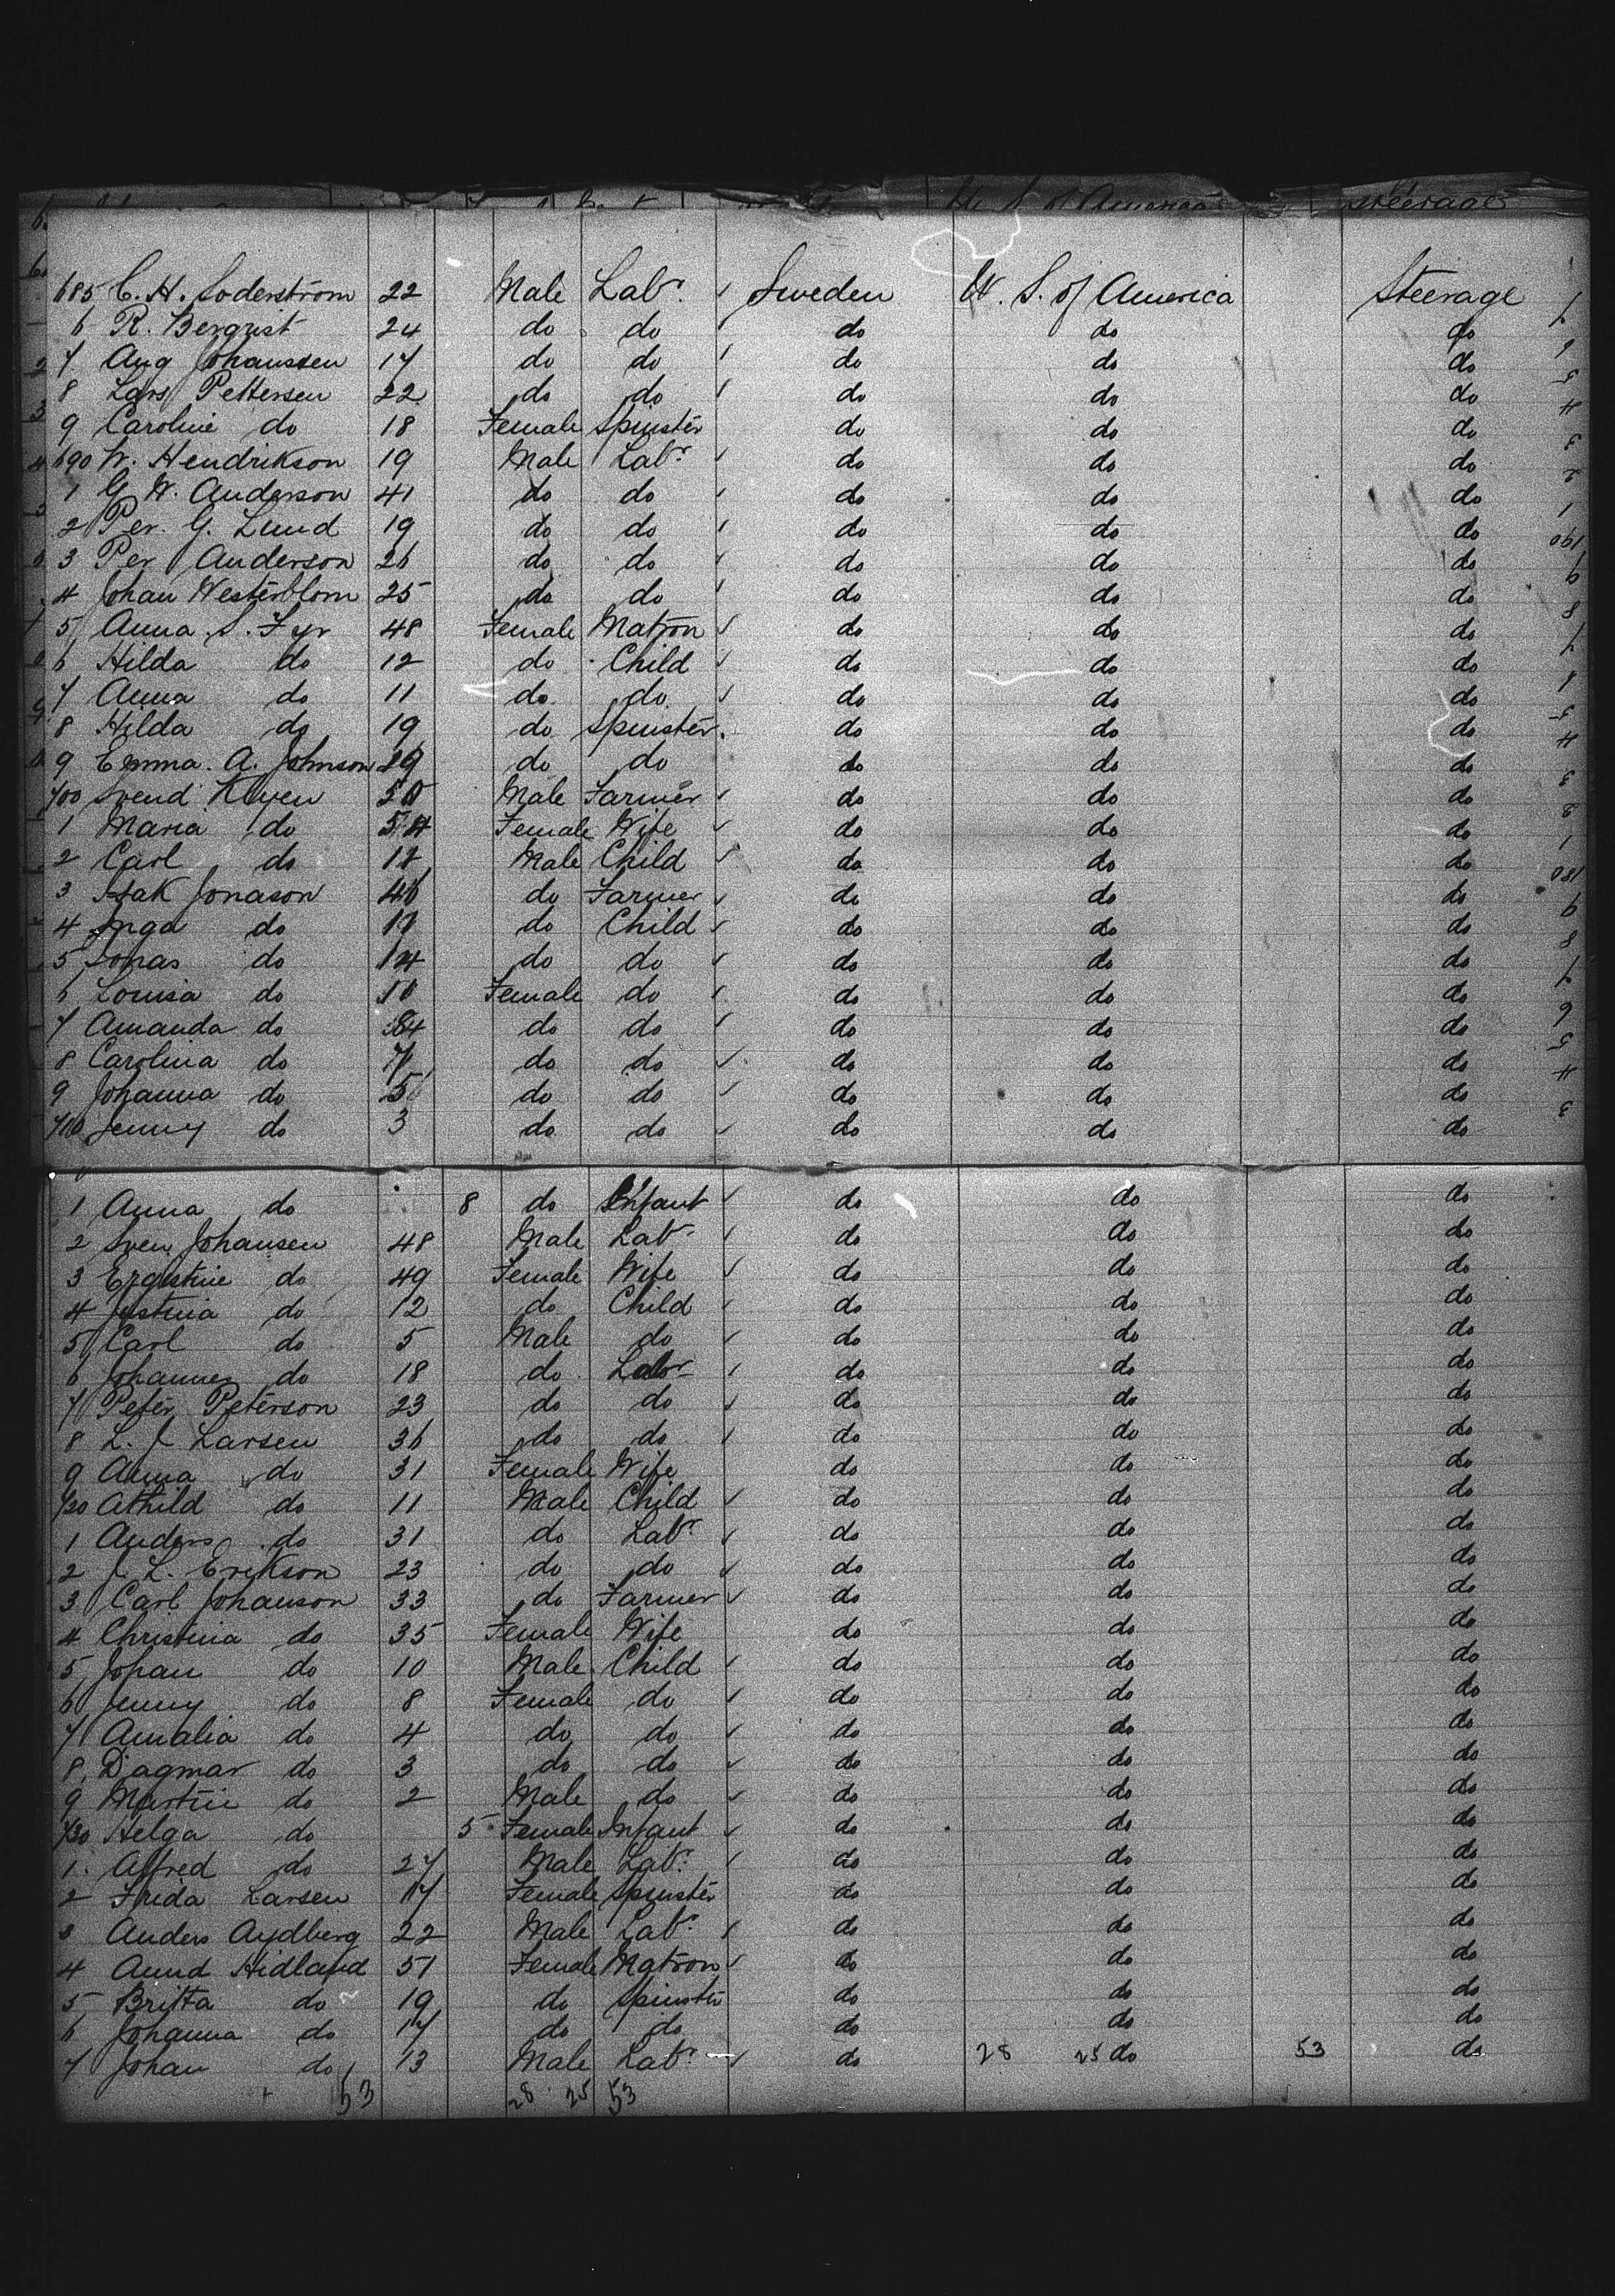 U. S. of America Steerage
685 C. H. Soderstrom 22 Male Labr. Sweden U. S. of America Steerage
6 R. Berqrist 24 do do do do do
7 Aug Johanssen 17 do do do do do
8 Lars Pettersen 22 do do do do do
9 Caroline do 18 Female Spinster do do do
690 W. Hendrikson 19 Male Labr do do do
1 G W. Anderson 41 do do do do do
2 Per. G. Lund 19 do do do do do
3 Per Anderson 26 do do do do do
4 Johan Westerblom 25 do do do do do
5 Anna S. Fyr 48 Female Matron do do do
6 Hilda do 12 do Child do do do
7 Anna do 11 do do do do do
8 Hilda do 19 do Spinster. do do do
9 Emma. A. Johnson 29 do do do do do
700 Svend Klyen 50 Male Farmer do do do
1 Maria do 54 Female Wife do do do
2 Carl do Male Child do do do
3 Isak Jonason 46 do Farmer do do do
4 Inga do do Child do do do
5 Jonas do 14 do do do do do
6 Louisa do 10 Female do do do do
7 Amanda do do do do do do
8 Carolina do 7 do do do do do
9 Johanna do 5 do do do do do
710 Jenny do 3 do do do do do
1 Anna do 8 do Infant do do do
2 Sven Johansen 48 Male Labr do do do
3 Ergistine do 49 Female Wife do do do
4 Justina do 12 do Child do do do
5 Carl do 5 Male do do do do
6 Johannes do 18 do Labr do do do
7 Peter Peterson 23 do do do do do
8 L. J Larsen 36 do do do do do
9 Anna do 31 Female Wife do do do
720 Athild do 11 Male Child do do do
1 Anders do 31 do Labr do do do
2 J. L. Erikson 23 do do do do do
3 Carl Johanson 33 do Farmer do do do
4 Christina do 35 Female Wife do do do
5 Johan do 10 Male Child do do do
6 Jenny do 8 Female do do do do
7 Amalia do 4 do do do do do
8 Dagmar do 3 do do do do do
9 Martin do 2 Male do do do do
730 Helga do 5 Female Infant do do do
1. Alfred do 27 Male Labr. do do do
2 Frida Larsen 17 Female Spinster do do do
3 Anders Aydberg 22 Male Labr. do do do
4 Aund Hidland 51 Female Matron do do do
5 Britta do 19 do Spinster do do do
6 Johanna do 17 do do do do do
7 Johan do 13 Male Labr. do 28 25 do 53 do
53 28 25 53